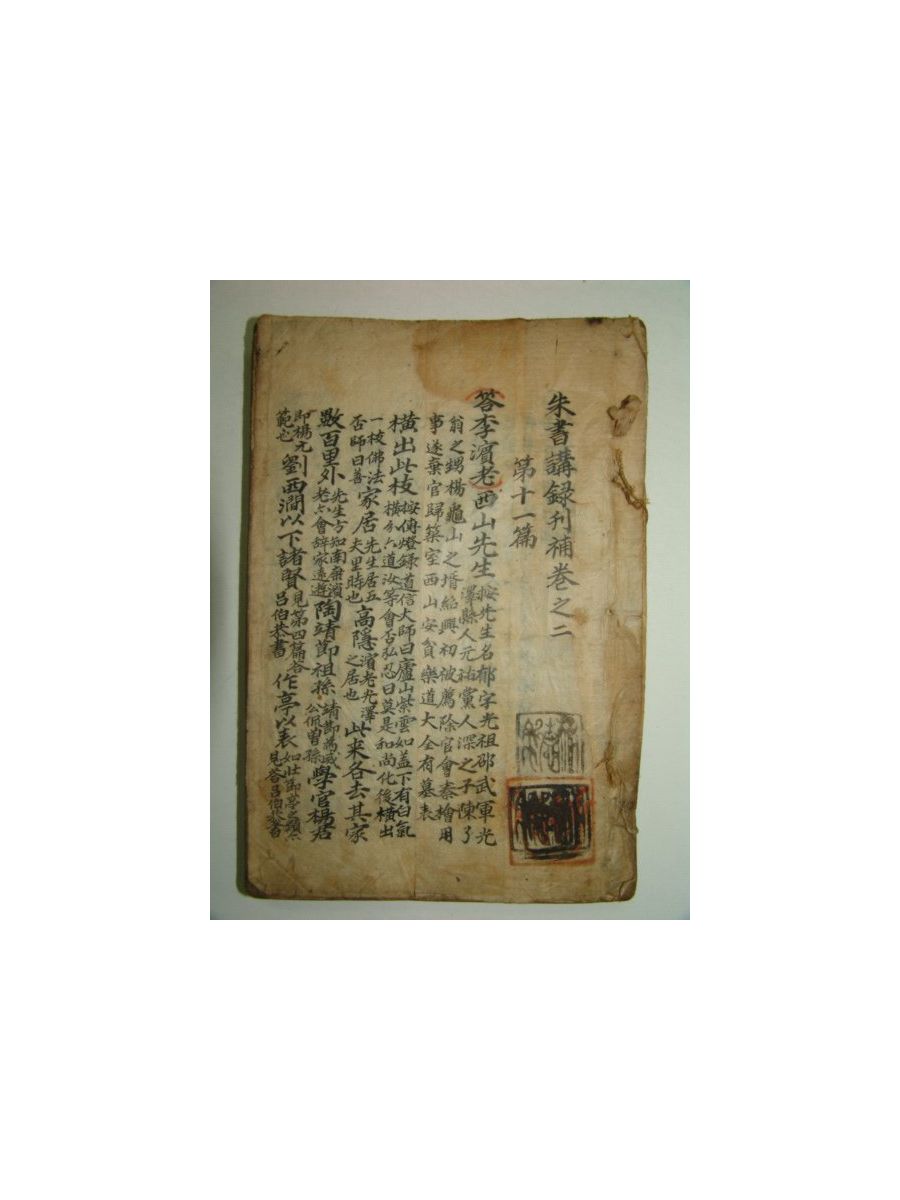 朱書講錄刊補卷之二
第十一篇
答李濱老西山先生按先生名郁字光祖邵武軍光
澤縣人元祐黨人深之子陳了
翁之甥楊龜山之壻紹興初被薦除官會秦檜用
事遂棄官歸築室西山安貧樂道大全有墓表
橫出此枝按傳燈錄道信大師曰廬山紫雲如盖下有白氣
橫分六道汝等會否弘忍曰莫是和尚化後橫出
一枝佛法
否師曰善
家居先生居五
夫里時也
高隱濱老光澤
之居也
此来各去其家
數百里外先生方知南康濱
老亦會辭家遠遊
陶靖節祖孫靖節爲威
公侃曾孫
學官楊君
即楊元
範也
劉西澗以下諸賢見第四篇答
呂伯恭書
作亭以表如壯節亭之類亦
見答呂伯恭書